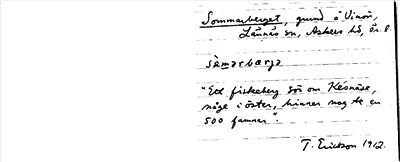 Sommarberget, grund å Vinön,
Lännäs sn, Askers hd, Ör. l.
sàmərbærjə
"Ett fiskeberg sör om Kesnäse,
någe i öster, hinner nog te en
500 famner".
T. Ericsson 1912.